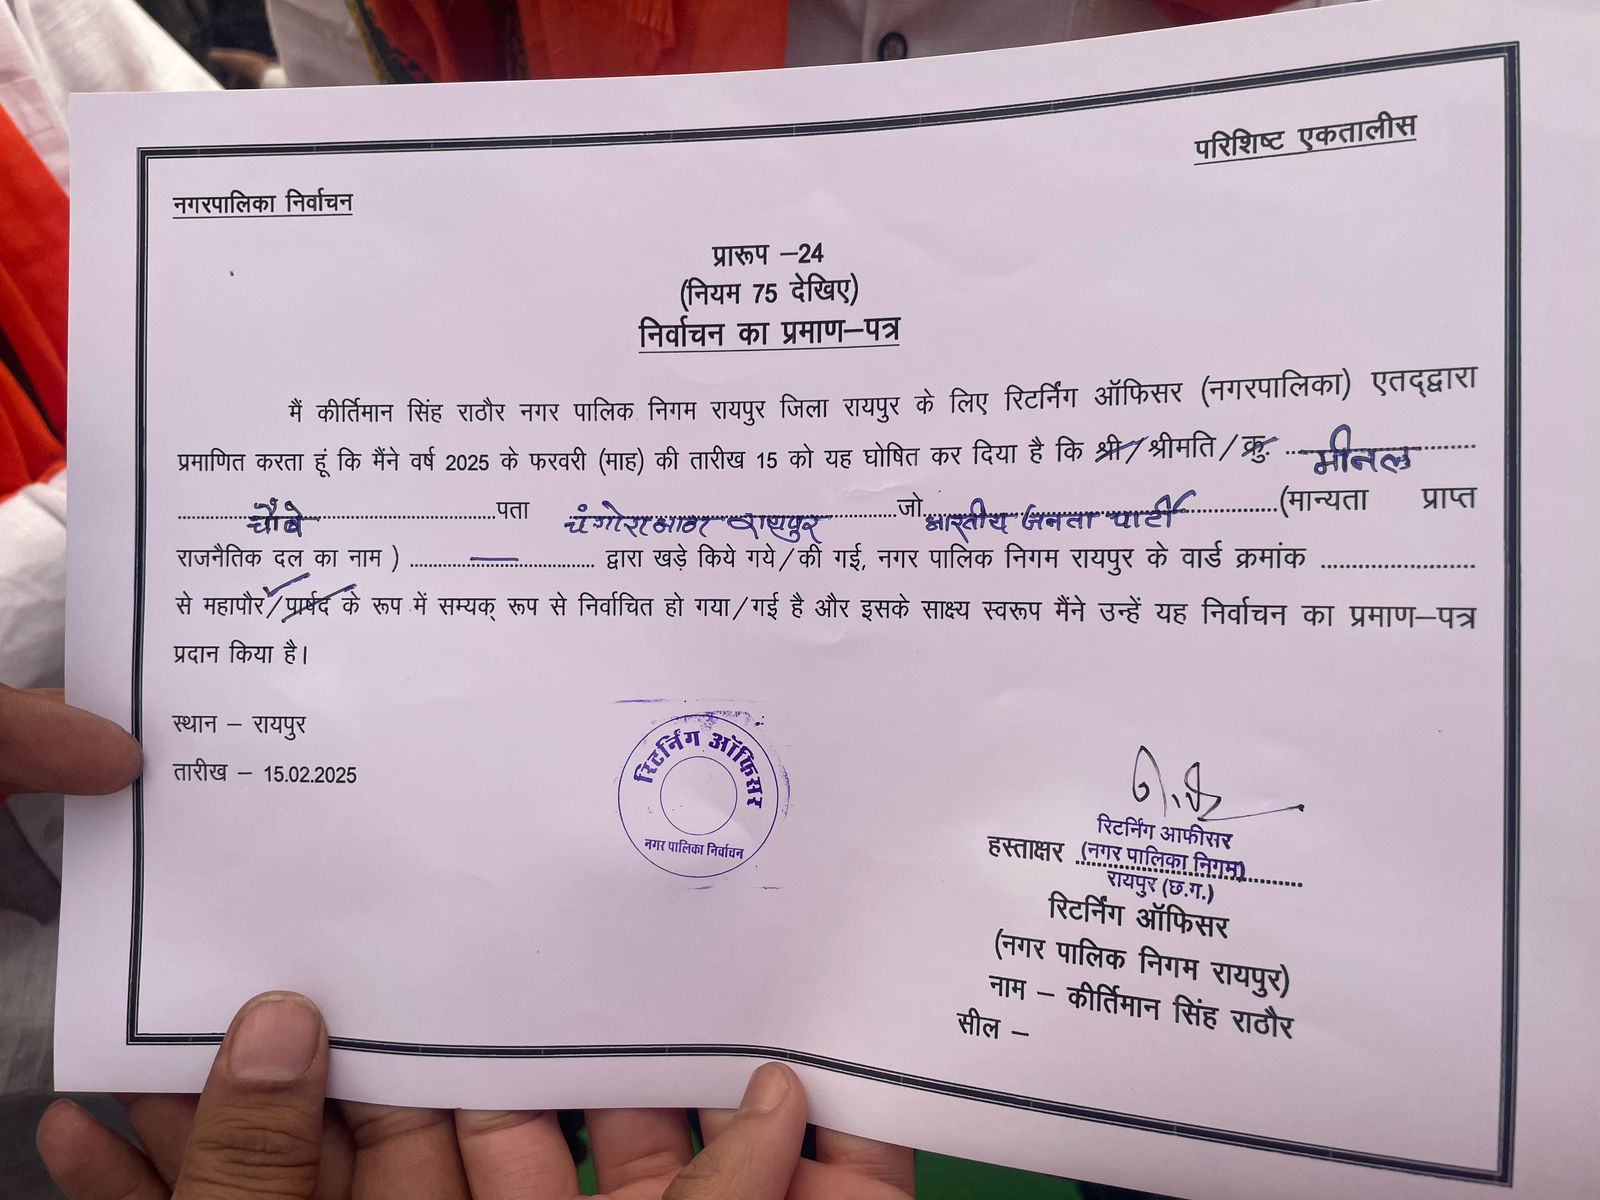 परिशिष्ट एकतालीस
नगरपालिका निर्वाचन
प्रारूप –24
(नियम 75 देखिए)
निर्वाचन का प्रमाण–पत्र
मैं कीर्तिमान सिंह राठौर नगर पालिक निगम रायपुर जिला रायपुर के लिए रिटर्निंग ऑफिसर (नगरपालिका) एतद्द्वारा
प्रमाणित करता हूं कि मैंने वर्ष 2025 के फरवरी (माह) की तारीख 15 को यह घोषित कर दिया है कि श्री/श्रीमति/कु. मीनल
चौबे पता चंगोराभाठा रायपुर जो भारतीय जनता पार्टी (मान्यता प्राप्त
राजनैतिक दल का नाम ) — द्वारा खड़े किये गये/की गई, नगर पालिक निगम रायपुर के वार्ड क्रमांक
से महापौर/पार्षद के रूप में सम्यक् रूप से निर्वाचित हो गया/गई है और इसके साक्ष्य स्वरूप मैंने उन्हें यह निर्वाचन का प्रमाण–पत्र
प्रदान किया है।
स्थान – रायपुर
तारीख – 15.02.2025
रिटर्निंग ऑफिसर
नगर पालिका निर्वाचन
रिटर्निंग आफीसर
हस्ताक्षर (नगर पालिका निगम)
रायपुर (छ.ग.)
रिटर्निंग ऑफिसर
(नगर पालिक निगम रायपुर)
नाम – कीर्तिमान सिंह राठौर
सील –